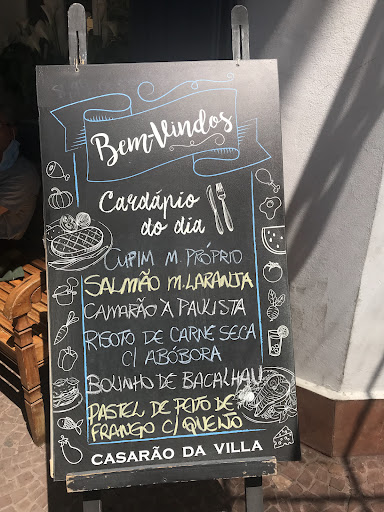 Bem-Vindos
Cardápio
do dia
CUPIM M. PRÓPRIO
SALMÃO M. LARANJA
CAMARÃO À PAULISTA
RISOTO DE CARNE SECA
C/ ABÓBORA
BOLINHO DE BACALHAU
PASTEL DE PEITO DE
FRANGO C/ QUEIJO
CASARÃO DA VILLA